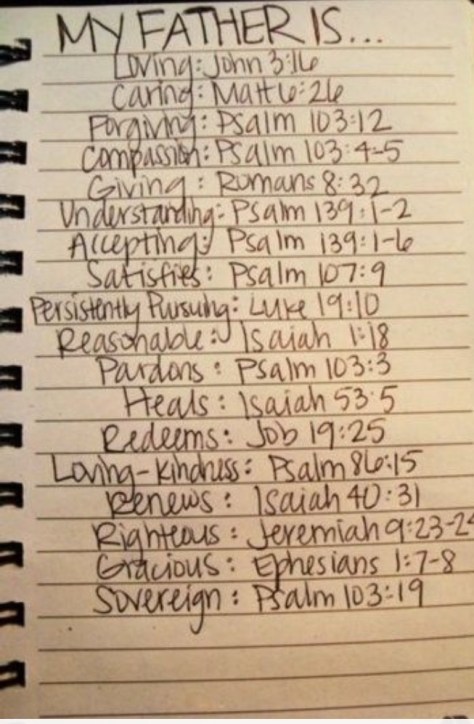 MY FATHER IS...
Loving: John 3:16
Caring: Matt 6:26
Forgiving: Psalm 103:12
Compassion: Psalm 103:4-5
Giving: Romans 8:32
Understanding: Psalm 139:1-2
Accepting: Psalm 139:1-6
Satisfies: Psalm 107:9
Persistently Pursuing: Luke 19:10
Reasonable: Isaiah 1:18
Pardons: Psalm 103:3
Heals: Isaiah 53:5
Redeems: Job 19:25
Loving-Kindness: Psalm 86:15
Renews: Isaiah 40:31
Righteous: Jeremiah 9:23-24
Gracious: Ephesians 1:7-8
Sovereign: Psalm 103:19